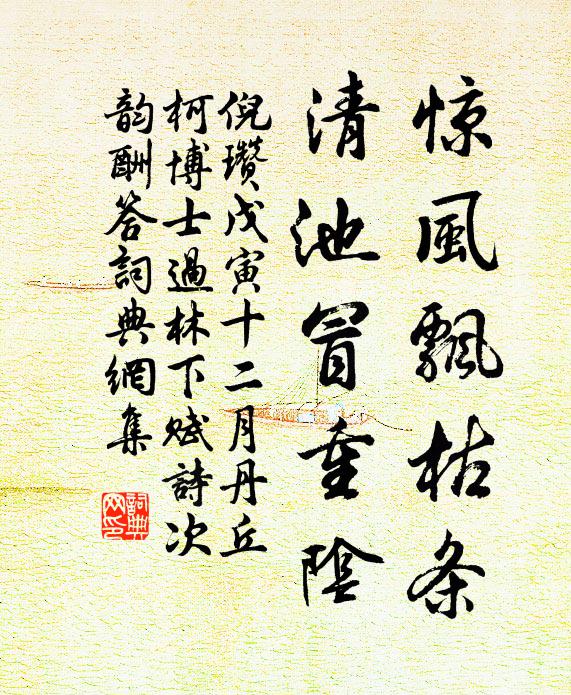 惊風飄枯条
清池冒重陰
倪瓚戊寅十二月丹丘
柯博士過林下赋詩次
韵酬答詞典網集
詞典网印